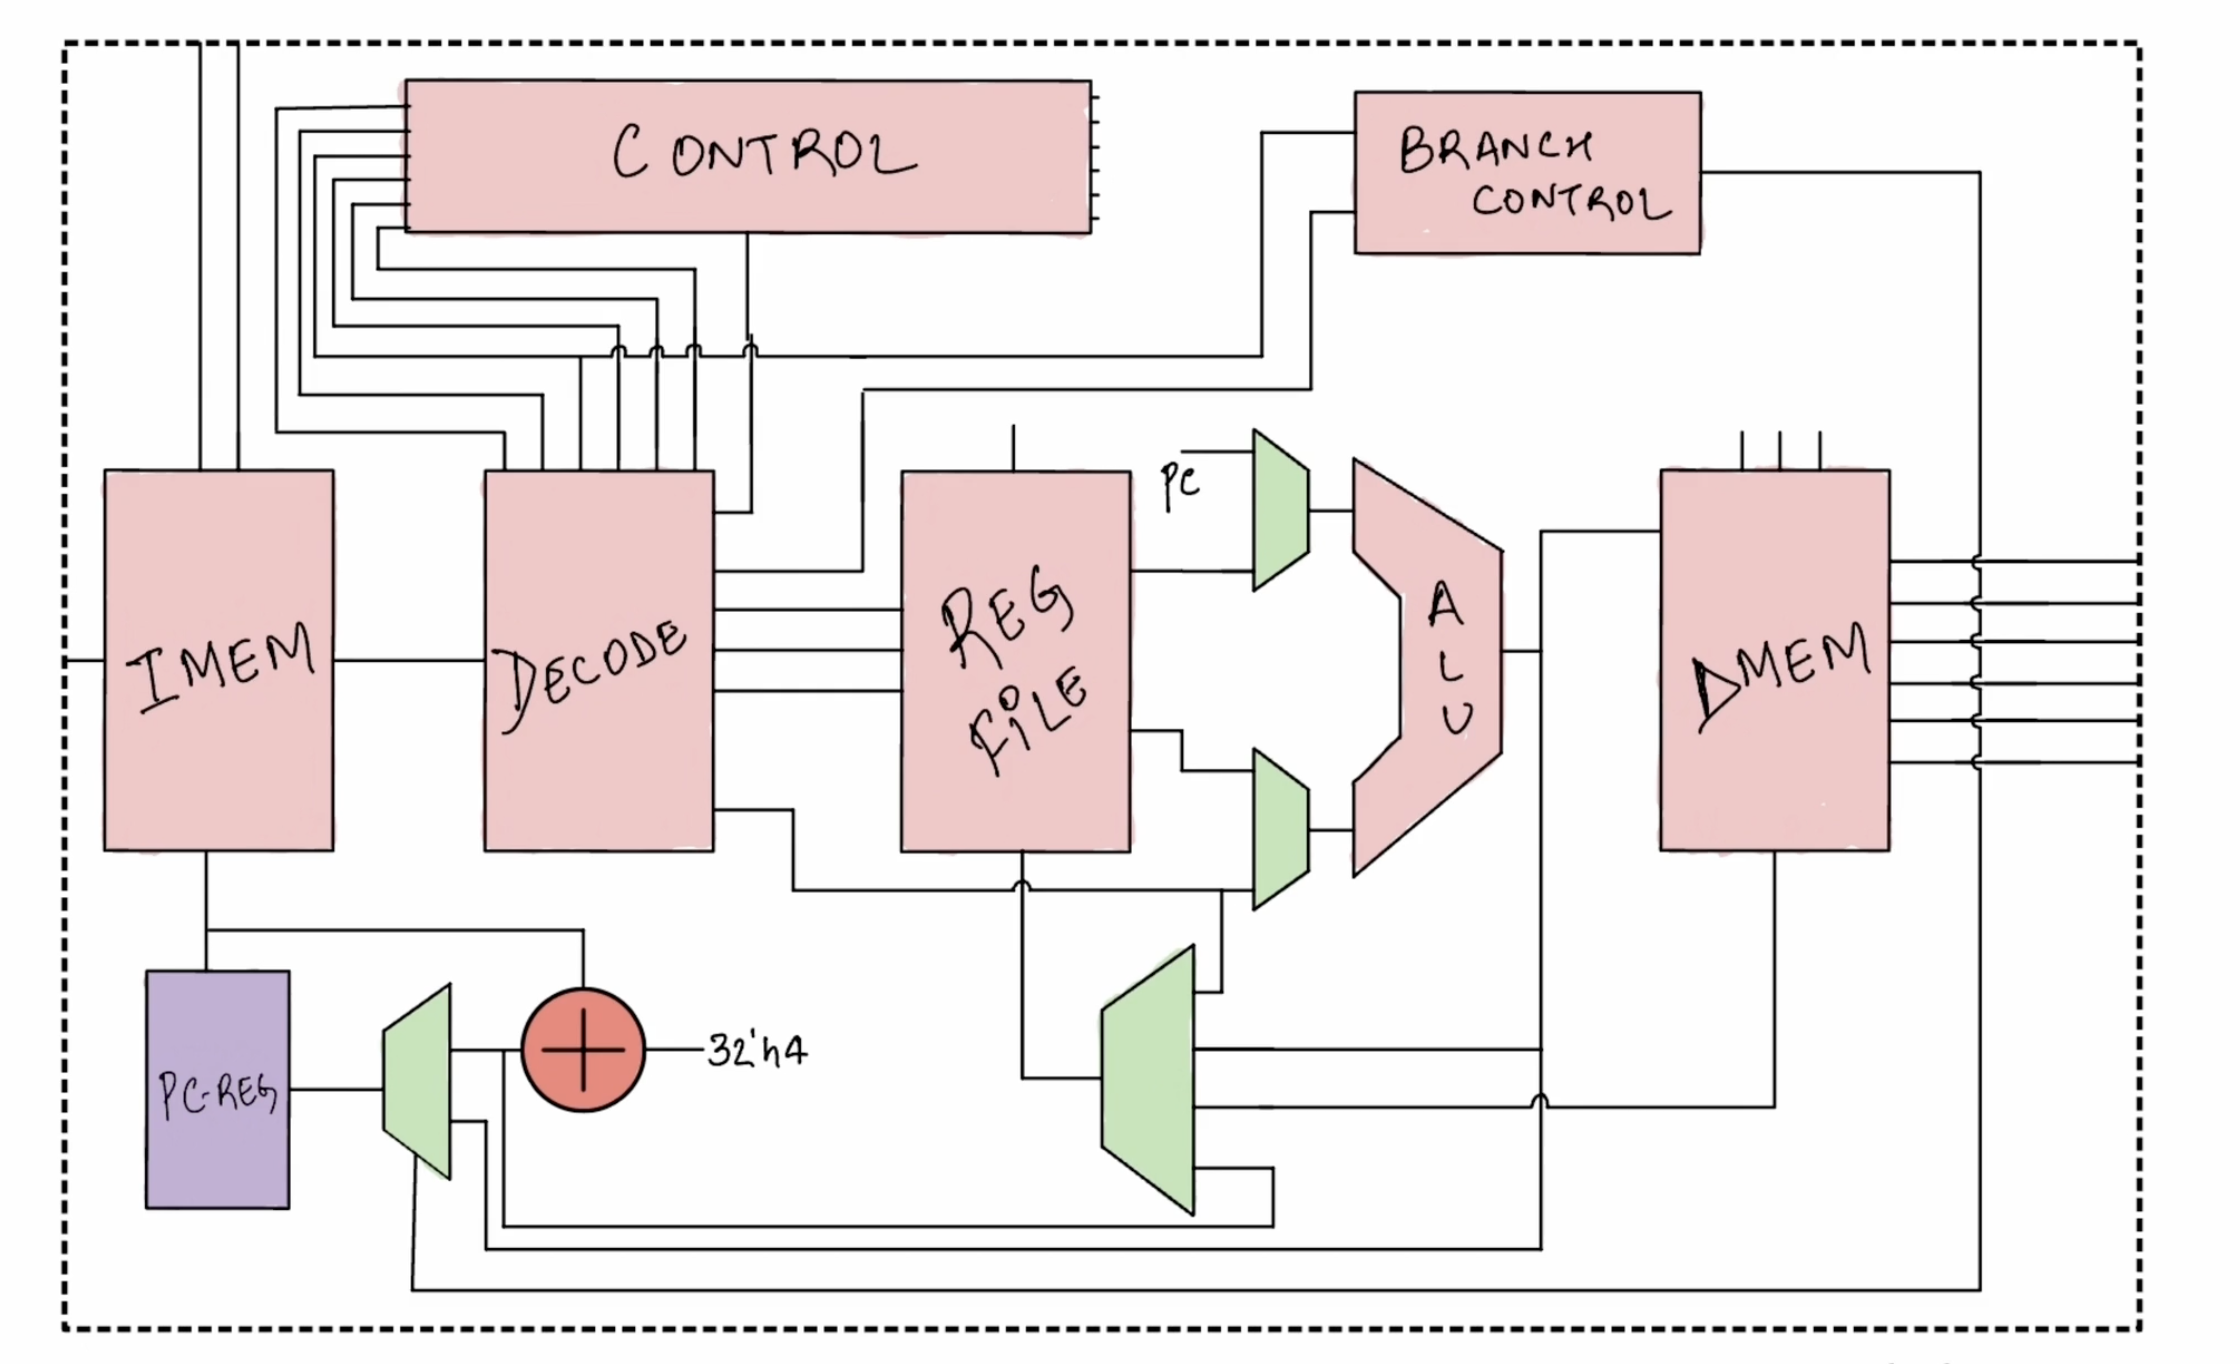 CONTROL
BRANCH
CONTROL
PC
IMEM
DECODE
REG
FILE
ALU
DMEM
PC-REG
32'h4